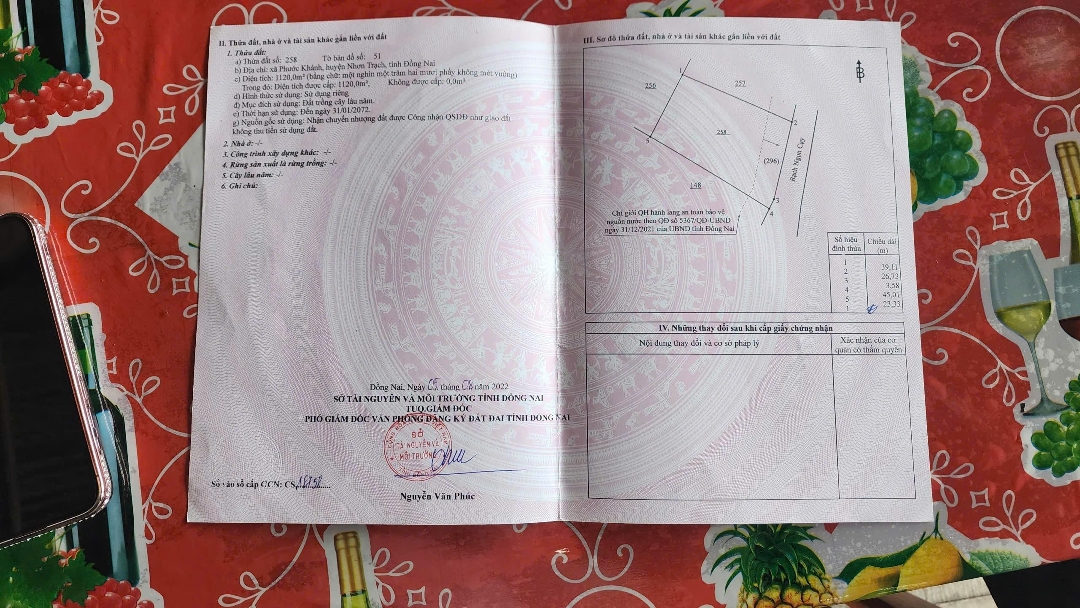 II. Thửa đất, nhà ở và tài sản khác gắn liền với đất
1. Thửa đất:
a) Thửa đất số: 258 Tờ bản đồ số: 51
b) Địa chỉ: xã Phước Khánh, huyện Nhơn Trạch, tỉnh Đồng Nai
c) Diện tích: 1120,0m² (bằng chữ: một nghìn một trăm hai mươi phẩy không mét vuông)
Trong đó: Diện tích được cấp: 1120,0m², Không được cấp: 0,0m²
d) Hình thức sử dụng: Sử dụng riêng
đ) Mục đích sử dụng: Đất trồng cây lâu năm.
e) Thời hạn sử dụng: Đến ngày 31/01/2072.
g) Nguồn gốc sử dụng: Nhận chuyển nhượng đất được Công nhận QSDĐ như giao đất
không thu tiền sử dụng đất.
2. Nhà ở: -/-
3. Công trình xây dựng khác: -/-
4. Rừng sản xuất là rừng trồng: -/-
5. Cây lâu năm: -/-
6. Ghi chú:
Đồng Nai, Ngày tháng năm 2022
SỞ TÀI NGUYÊN VÀ MÔI TRƯỜNG TỈNH ĐỒNG NAI
TUQ.GIÁM ĐỐC
PHÓ GIÁM ĐỐC VĂN PHÒNG ĐĂNG KÝ ĐẤT ĐAI TỈNH ĐỒNG NAI
SỞ
TÀI NGUYÊN VÀ
MÔI TRƯỜNG
Số vào sổ cấp GCN: CS
Nguyễn Văn Phúc
III. Sơ đồ thửa đất, nhà ở và tài sản khác gắn liền với đất
B
1
257
2
258
5
(296)
Rạch Ngọn Cạy
148
3
4
Chỉ giới QH hành lang an toàn bảo vệ
nguồn nước theo QĐ số 5367/QĐ-UBND
ngày 31/12/2021 của UBND tỉnh Đồng Nai
Số hiệu đỉnh thửa Chiều dài (m)
1
39,11
2
26,73
3
3,58
4
45,01
5
23,33
1
IV. Những thay đổi sau khi cấp giấy chứng nhận
Nội dung thay đổi và cơ sở pháp lý
Xác nhận của cơ
quan có thẩm quyền